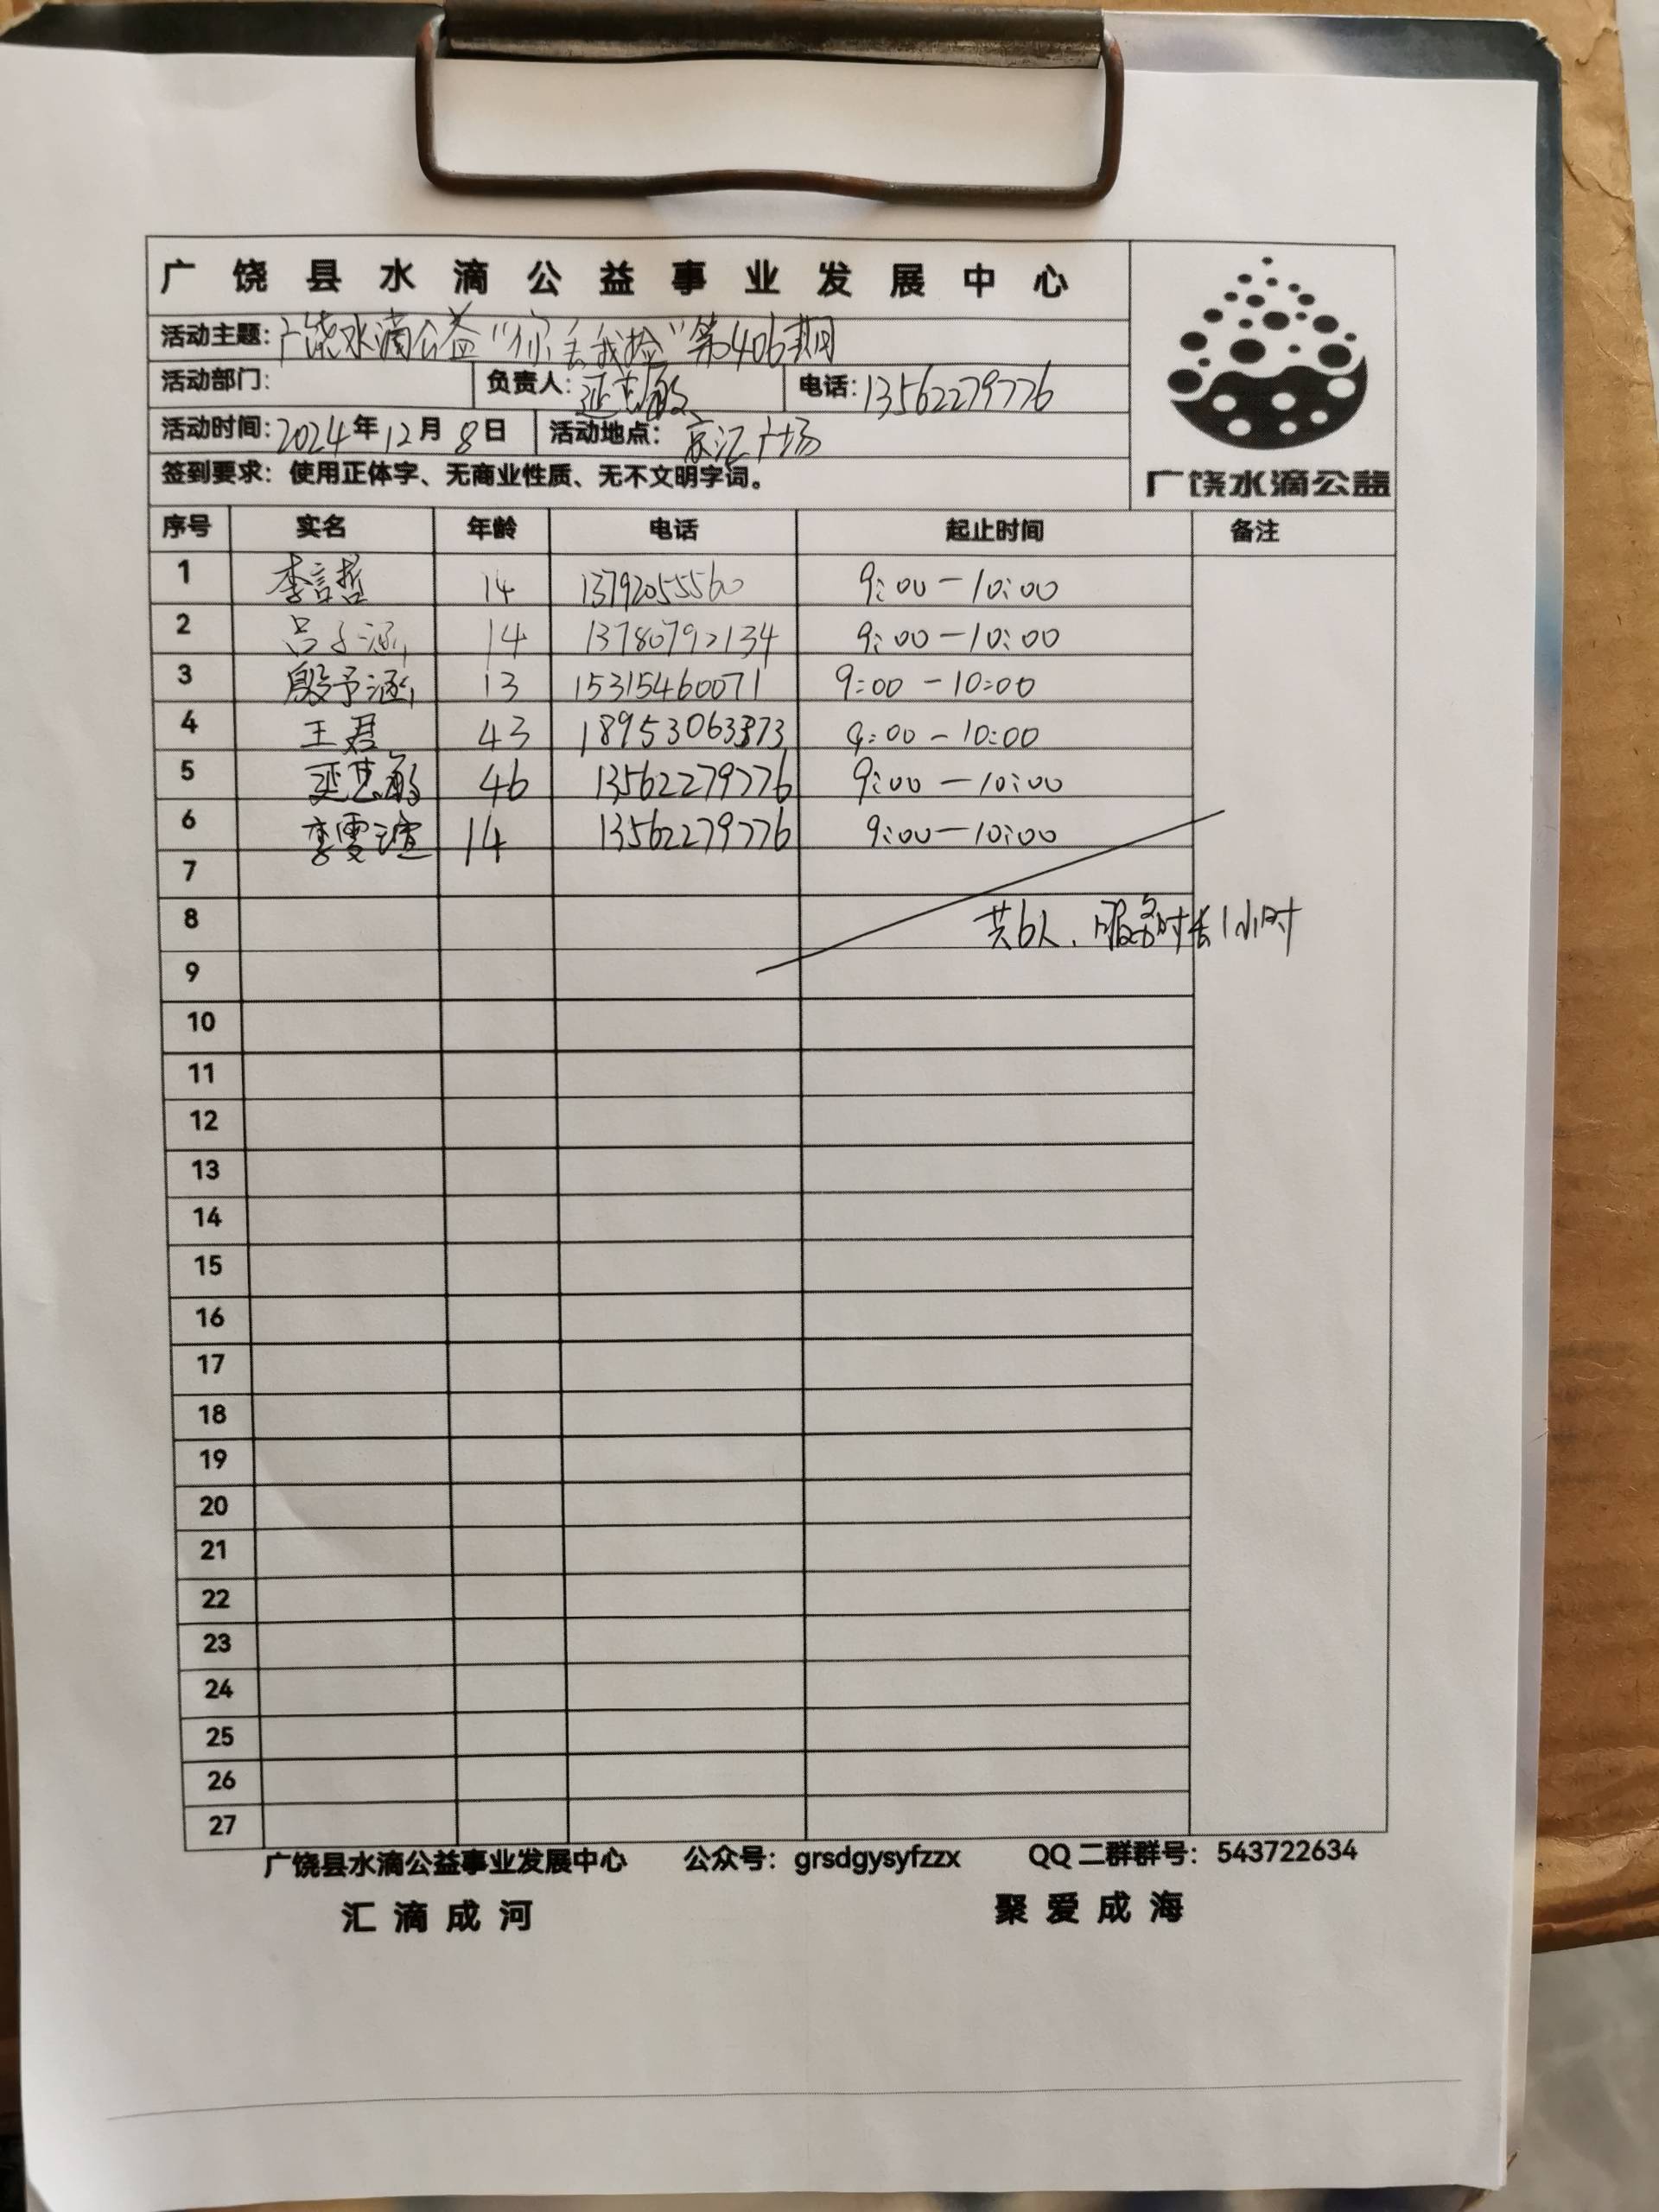 广饶县水滴公益事业发展中心
活动主题：广饶水滴公益“你丢我捡”第406期
活动部门： 负责人：延志敏 电话：13562279776
活动时间：2024年12月8日 活动地点：广场
签到要求：使用正体字、无商业性质、无不文明字词。
广饶水滴公益
序号 实名 年龄 电话 起止时间 备注
1 李言哲 14 13792055560 9:00-10:00
2 吕子涵 14 13780792134 9:00-10:00
3 殷予涵 13 15315460071 9:00-10:00
4 王君 43 18953063373 9:00-10:00
5 延志敏 46 13562279776 9:00-10:00
6 李雯 14 13562279776 9:00-10:00
7
8 共6人，服务时长1小时
9
10
11
12
13
14
15
16
17
18
19
20
21
22
23
24
25
26
27
广饶县水滴公益事业发展中心 公众号：grsdgysyfzzx QQ二群群号：543722634
汇滴成河 聚爱成海